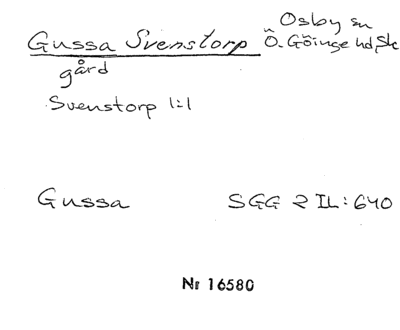 Gussa Svenstorp Osby sn
Ö. Göinge hd, Sk
gård
Svenstorp 1:1
Gussa SGG 2 IL: 640
Nr 16580